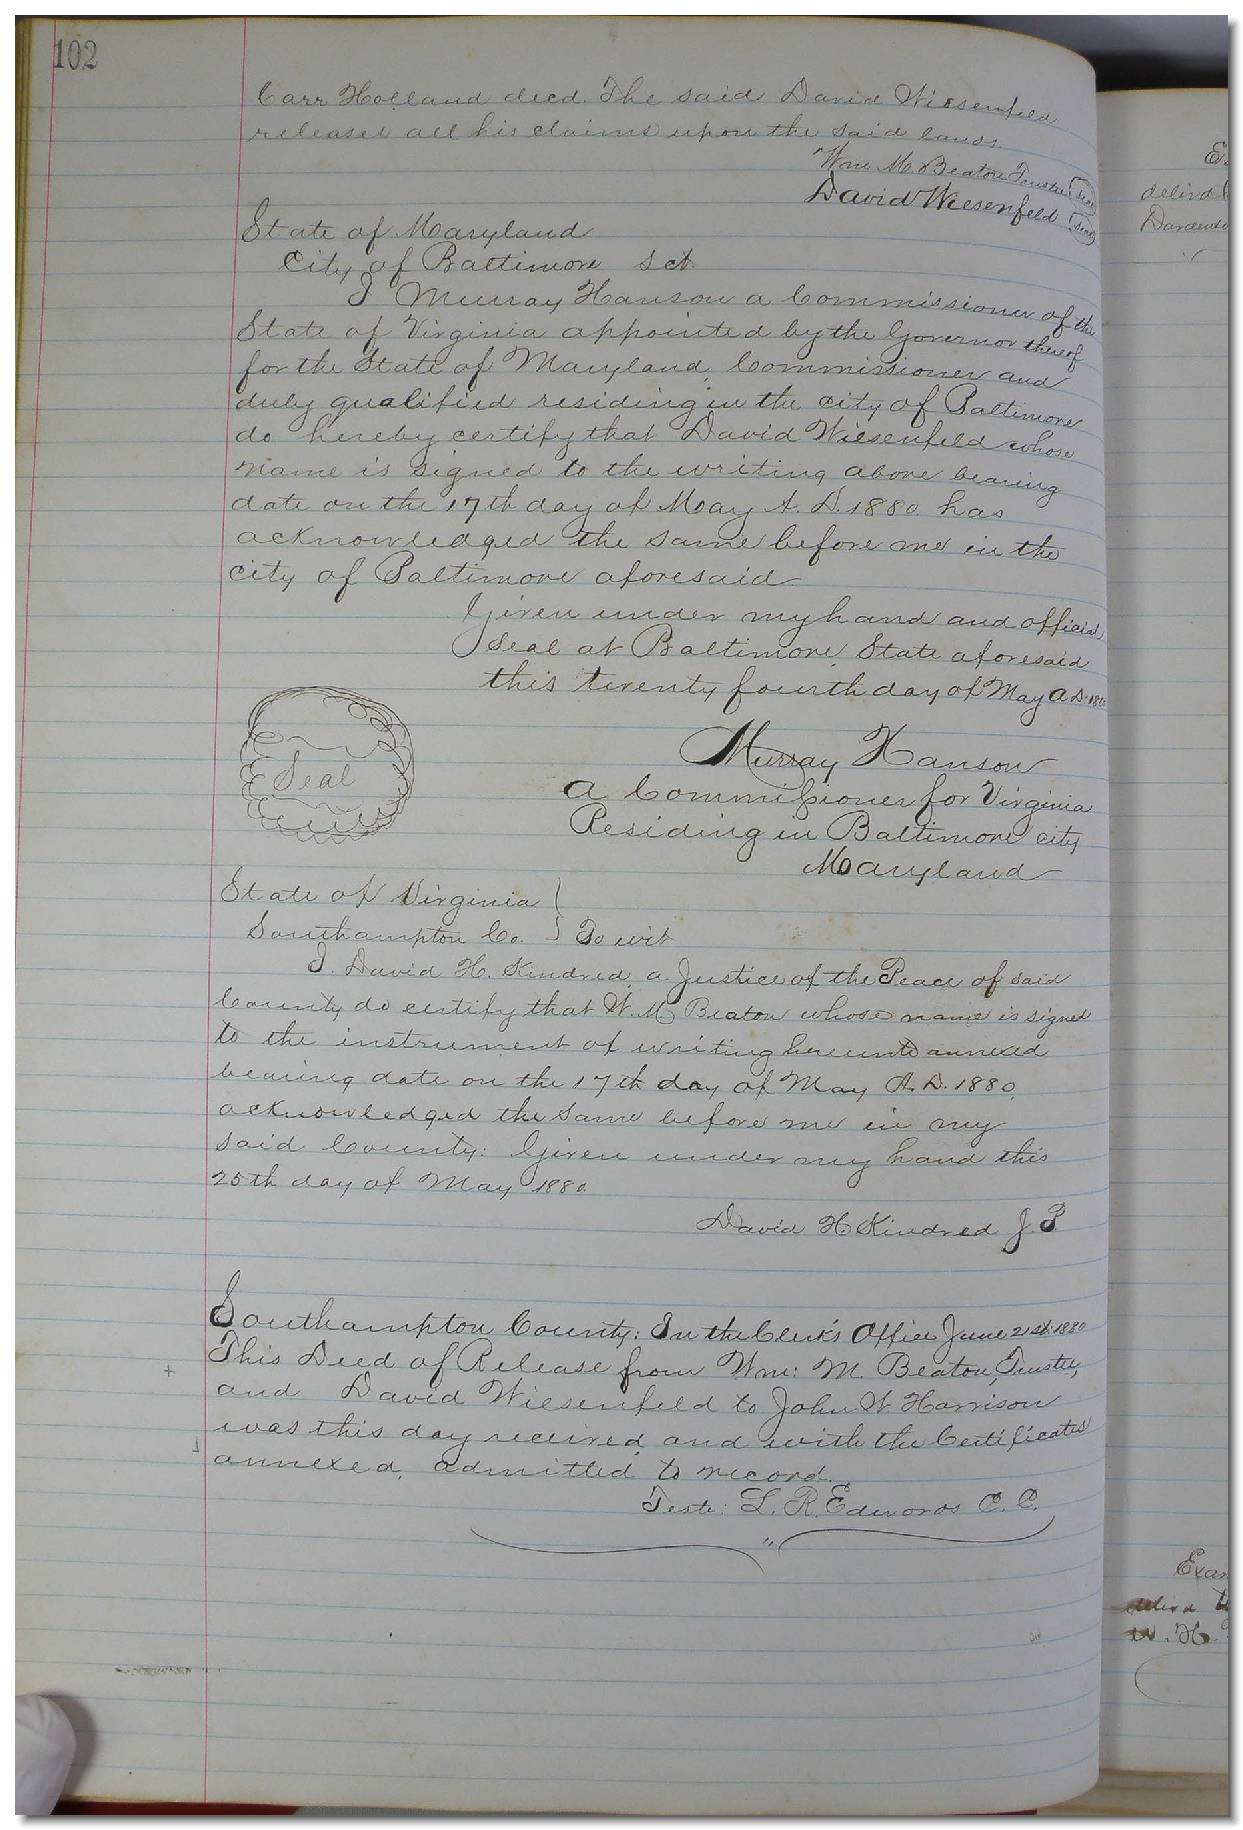 102
Carr Holland decd. The said David Wiesenfeld
releases all his claims upon the said lands.
Wm. M. Beaton Trustee (seal)
David Wiesenfeld (seal)
State of Maryland
City of Baltimore Sct.
I Murray Hanson a Commissioner of the
State of Virginia appointed by the Governor thereof
for the State of Maryland, Commissioner and
duly qualified residing in the city of Baltimore
do hereby certify that David Wiesenfeld whose
name is signed to the writing above bearing
date on the 17th day of May A. D. 1880. has
acknowledged the same before me in the
city of Baltimore aforesaid
Given under my hand and official
Seal at Baltimore, State aforesaid
this twenty fourth day of May A D. 1880
Murray Hanson
Seal
A Commissioner for Virginia
Residing in Baltimore city
Maryland
State of Virginia }
Southampton Co. } To wit
I. David H. Kindred, a Justice of the Peace of said
County do certify that W. M. Beaton whose name is signed
to the instrument of writing hereunto annexed
bearing date on the 17th day of May A. D. 1880,
acknowledged the same before me in my
said County: Given under my hand this
25th day of May 1880.
David H Kindred J. P.
Southampton County: In the Clerk's Office June 21st 1880
This Deed of Release from Wm: M. Beaton, Trustee,
and David Wiesenfeld to John W. Harrison
was this day received, and with the Certificates
annexed, admitted to record.
Teste: L. R. Edwards C. C.
delivd
Exam
delivd
W. H.